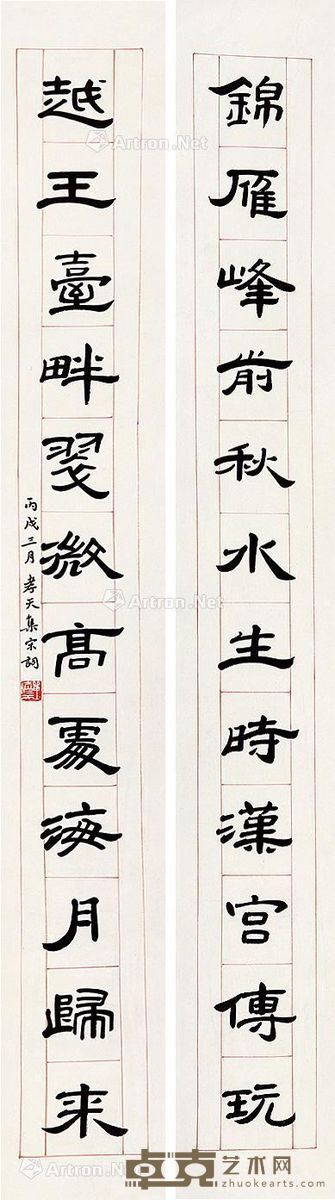 錦雁峰前秋水生時漢宮傳玩
越王臺畔翠微高處海月歸來
丙戌三月孝天集宋詞
Artron.Net
Artron.Net
Artron.Net
Artron.Net
Artron.Net
Artron.Net
卓克艺术网
www.zhuokearts.com